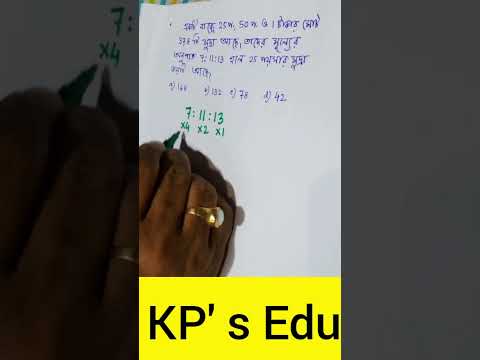 একটি বাক্সে 25 প, 50 প ও 1 টাকার মোট
378 টি মুদ্রা আছে, তাদের মূল্যের
অনুপাত 7:11:13 হলে 25 পয়সার মুদ্রা
কতটি আছে।
a) 168 b) 132 c) 78 d) 42
7:11:13
×4 ×2 ×1
KP's Edu
7:
×4